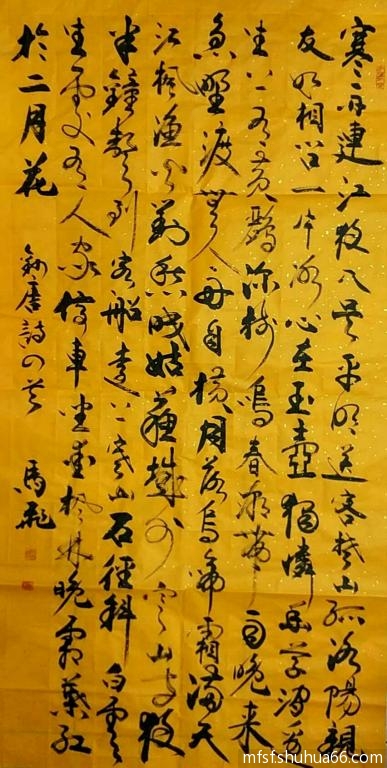 寒雨連江夜入吴平明送客楚山孤洛陽親
友如相問一片冰心在玉壺獨憐幽草澗邊
生上有黄鸝深樹鳴春潮帶雨晚來
急野渡無人舟自横月落烏啼霜滿天
江楓漁火對愁眠姑蘇城外寒山寺夜
半鐘聲到客船遠上寒山石徑斜白雲
生處有人家停車坐愛楓林晚霜葉紅
於二月花
唐詩四首
馬
mfsfshuhua66.com